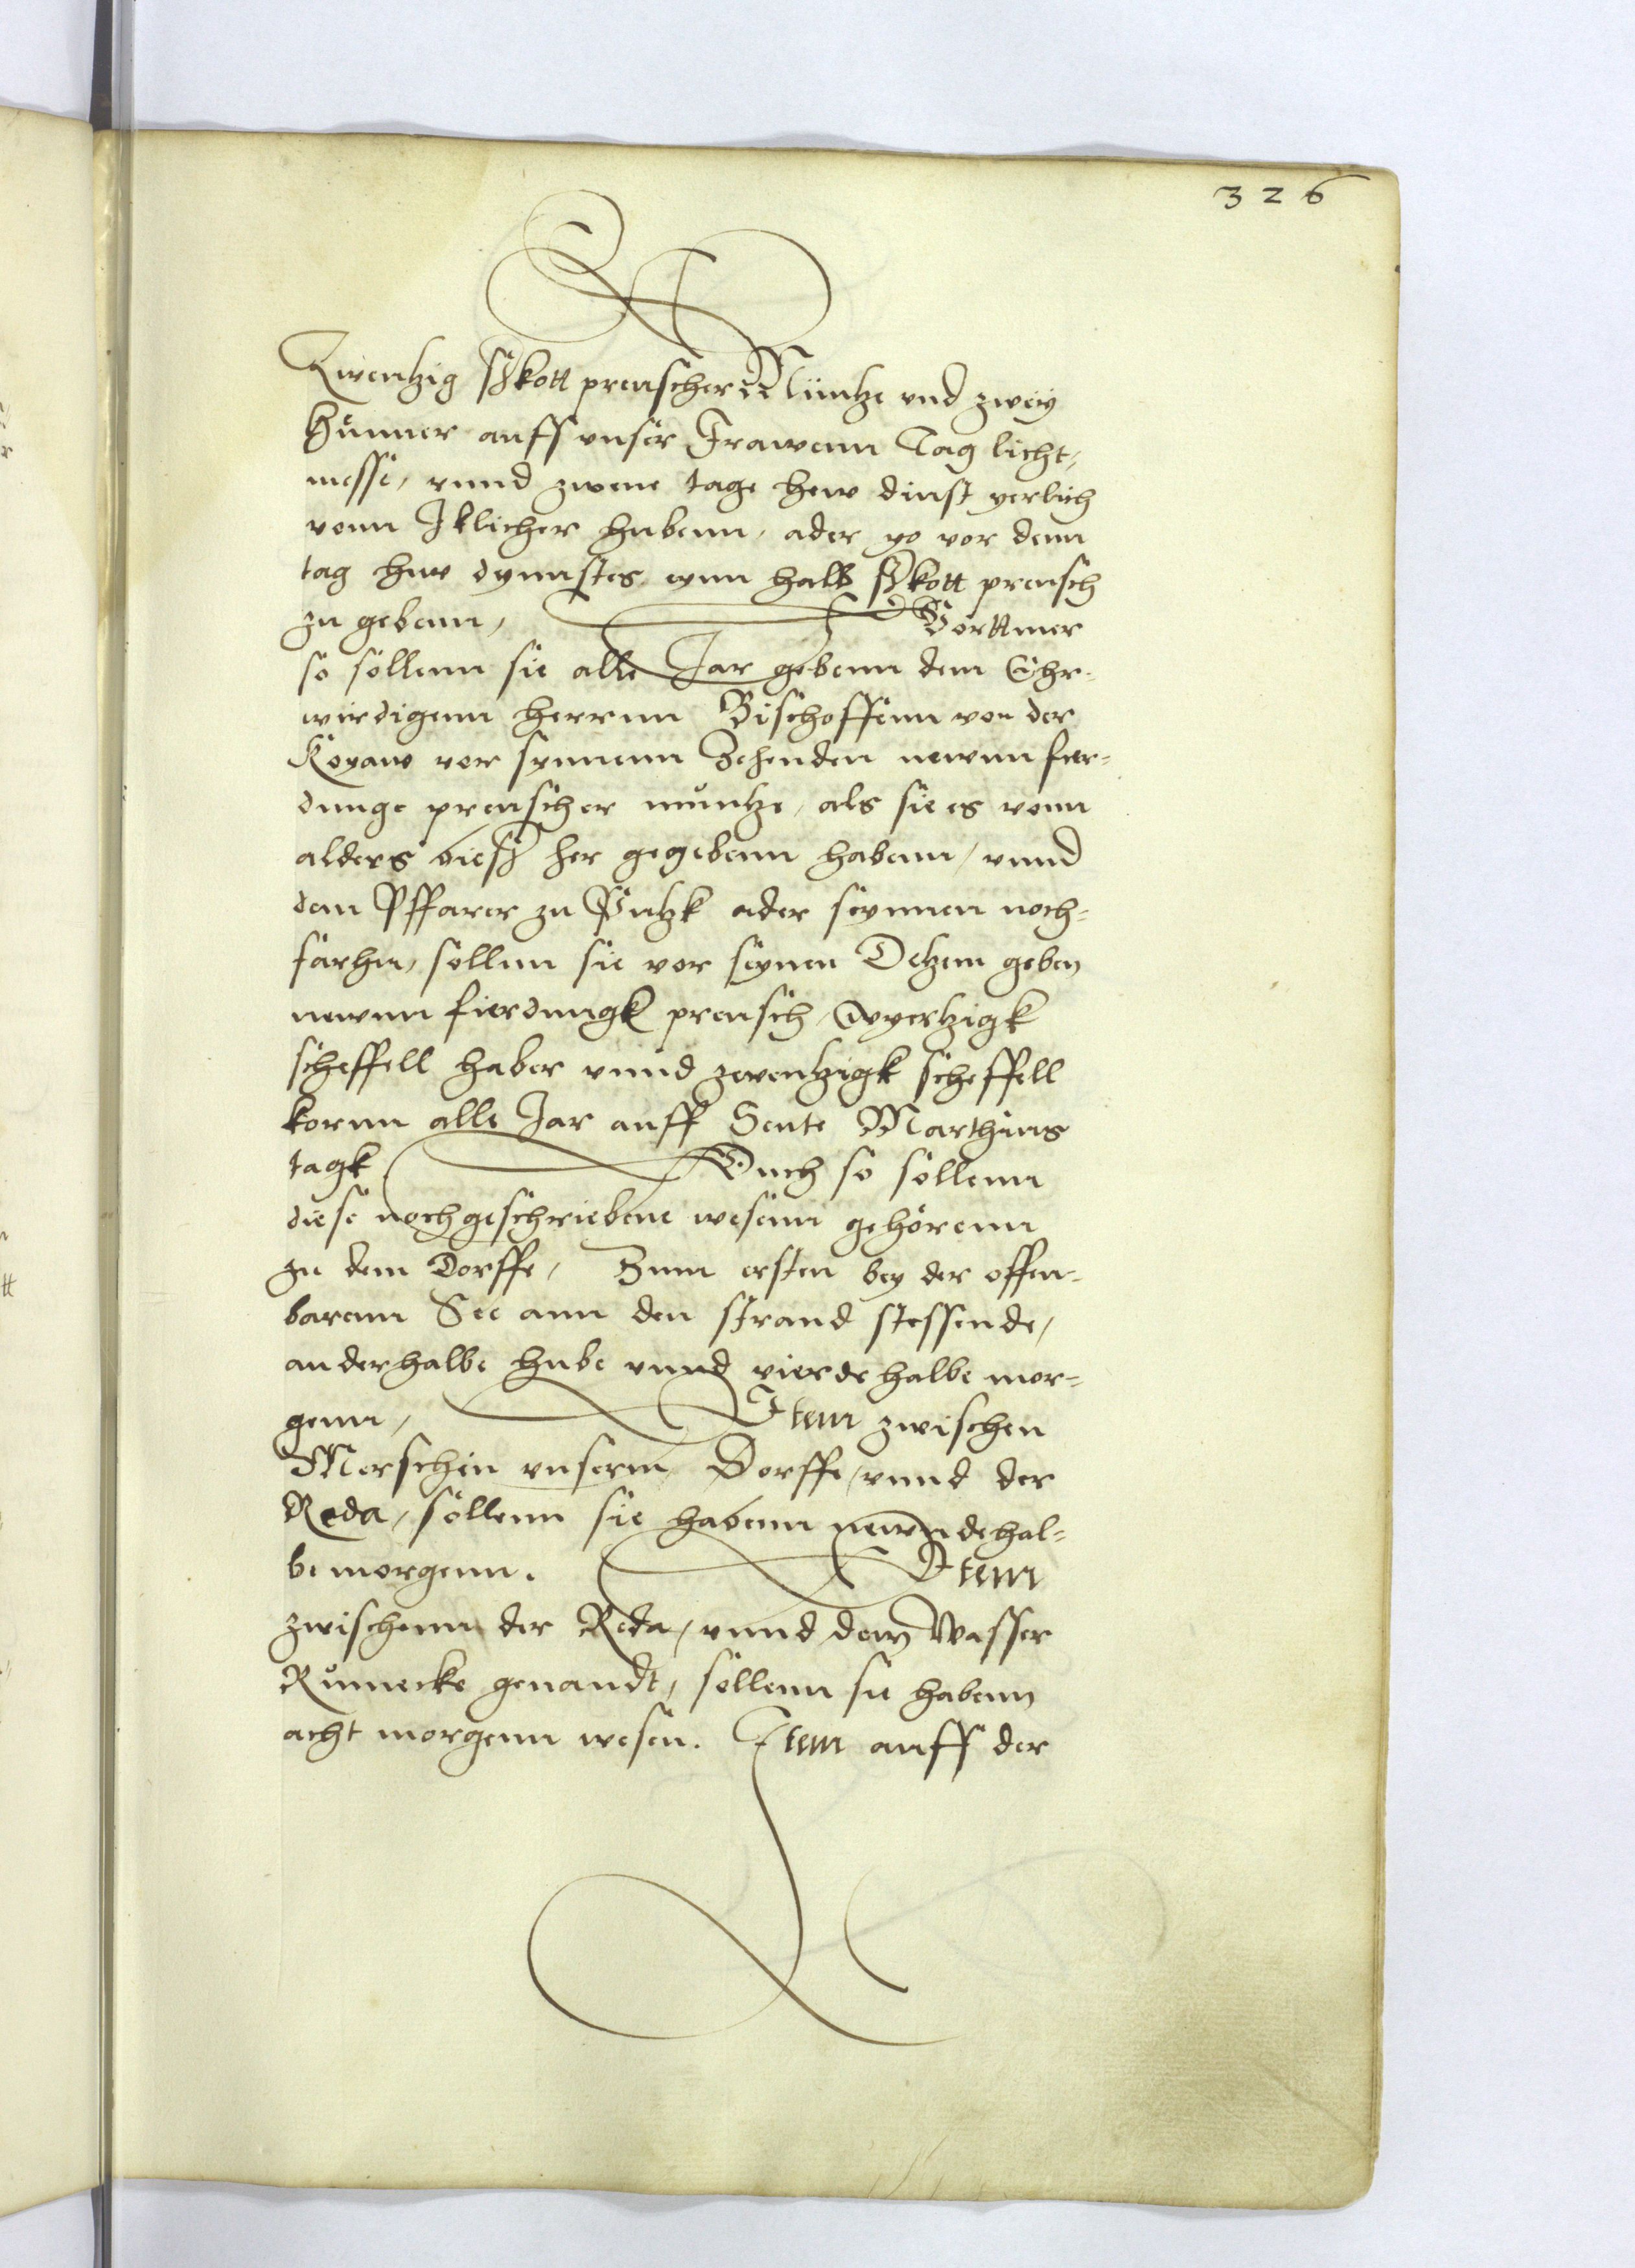 326
Zwentzig ßkott preuscher Müntze vnd zwey
hünner auff vnser Frawenn Tag licht-
messe, vnnd zwene tage hew dinst yerlich
vonn Jklicher hubenn, ader yo vor denn
tag hew dynnstes eynn halb ßkott preusch
zu gebenn, Vorttmer
so sollenn sie alle Jar gebenn dem Ehr-
wirdigenn herrnn Bischoffenn von der
Koyaw vor synnenn Zehenden newnn fier-
dunge preuscher müntze, als sie es vonn
alders bieß her gegebenn habenn, vnnd
dem Pffarer zu Putzk ader seynnen noch-
farhen, sollenn sie vor seynen Detzem geben
newnn fierdungk preusch, vyertzigk
scheffell haber vnnd zwentzigk scheffell
kornn alle Jar auff Sente Marthins
tagk Ouch so sollenn
diese nochgeschriebene wesenn gehörenn
zu dem Dorffe, Zum ersten bey der offen-
barenn See ann den strand stossende,
anderhalbe hube vnnd vierdehalbe mor-
genn, Item zwischen
Merschin vnserm Dorffe, vnnd der
Reda, sollenn sie habenn newndehal-
be morgenn. Item
zwischenn der Reda, vnnd dem Wasser
Rümecke genandt, sollenn sie habenn
acht morgenn wesen. Item auff der